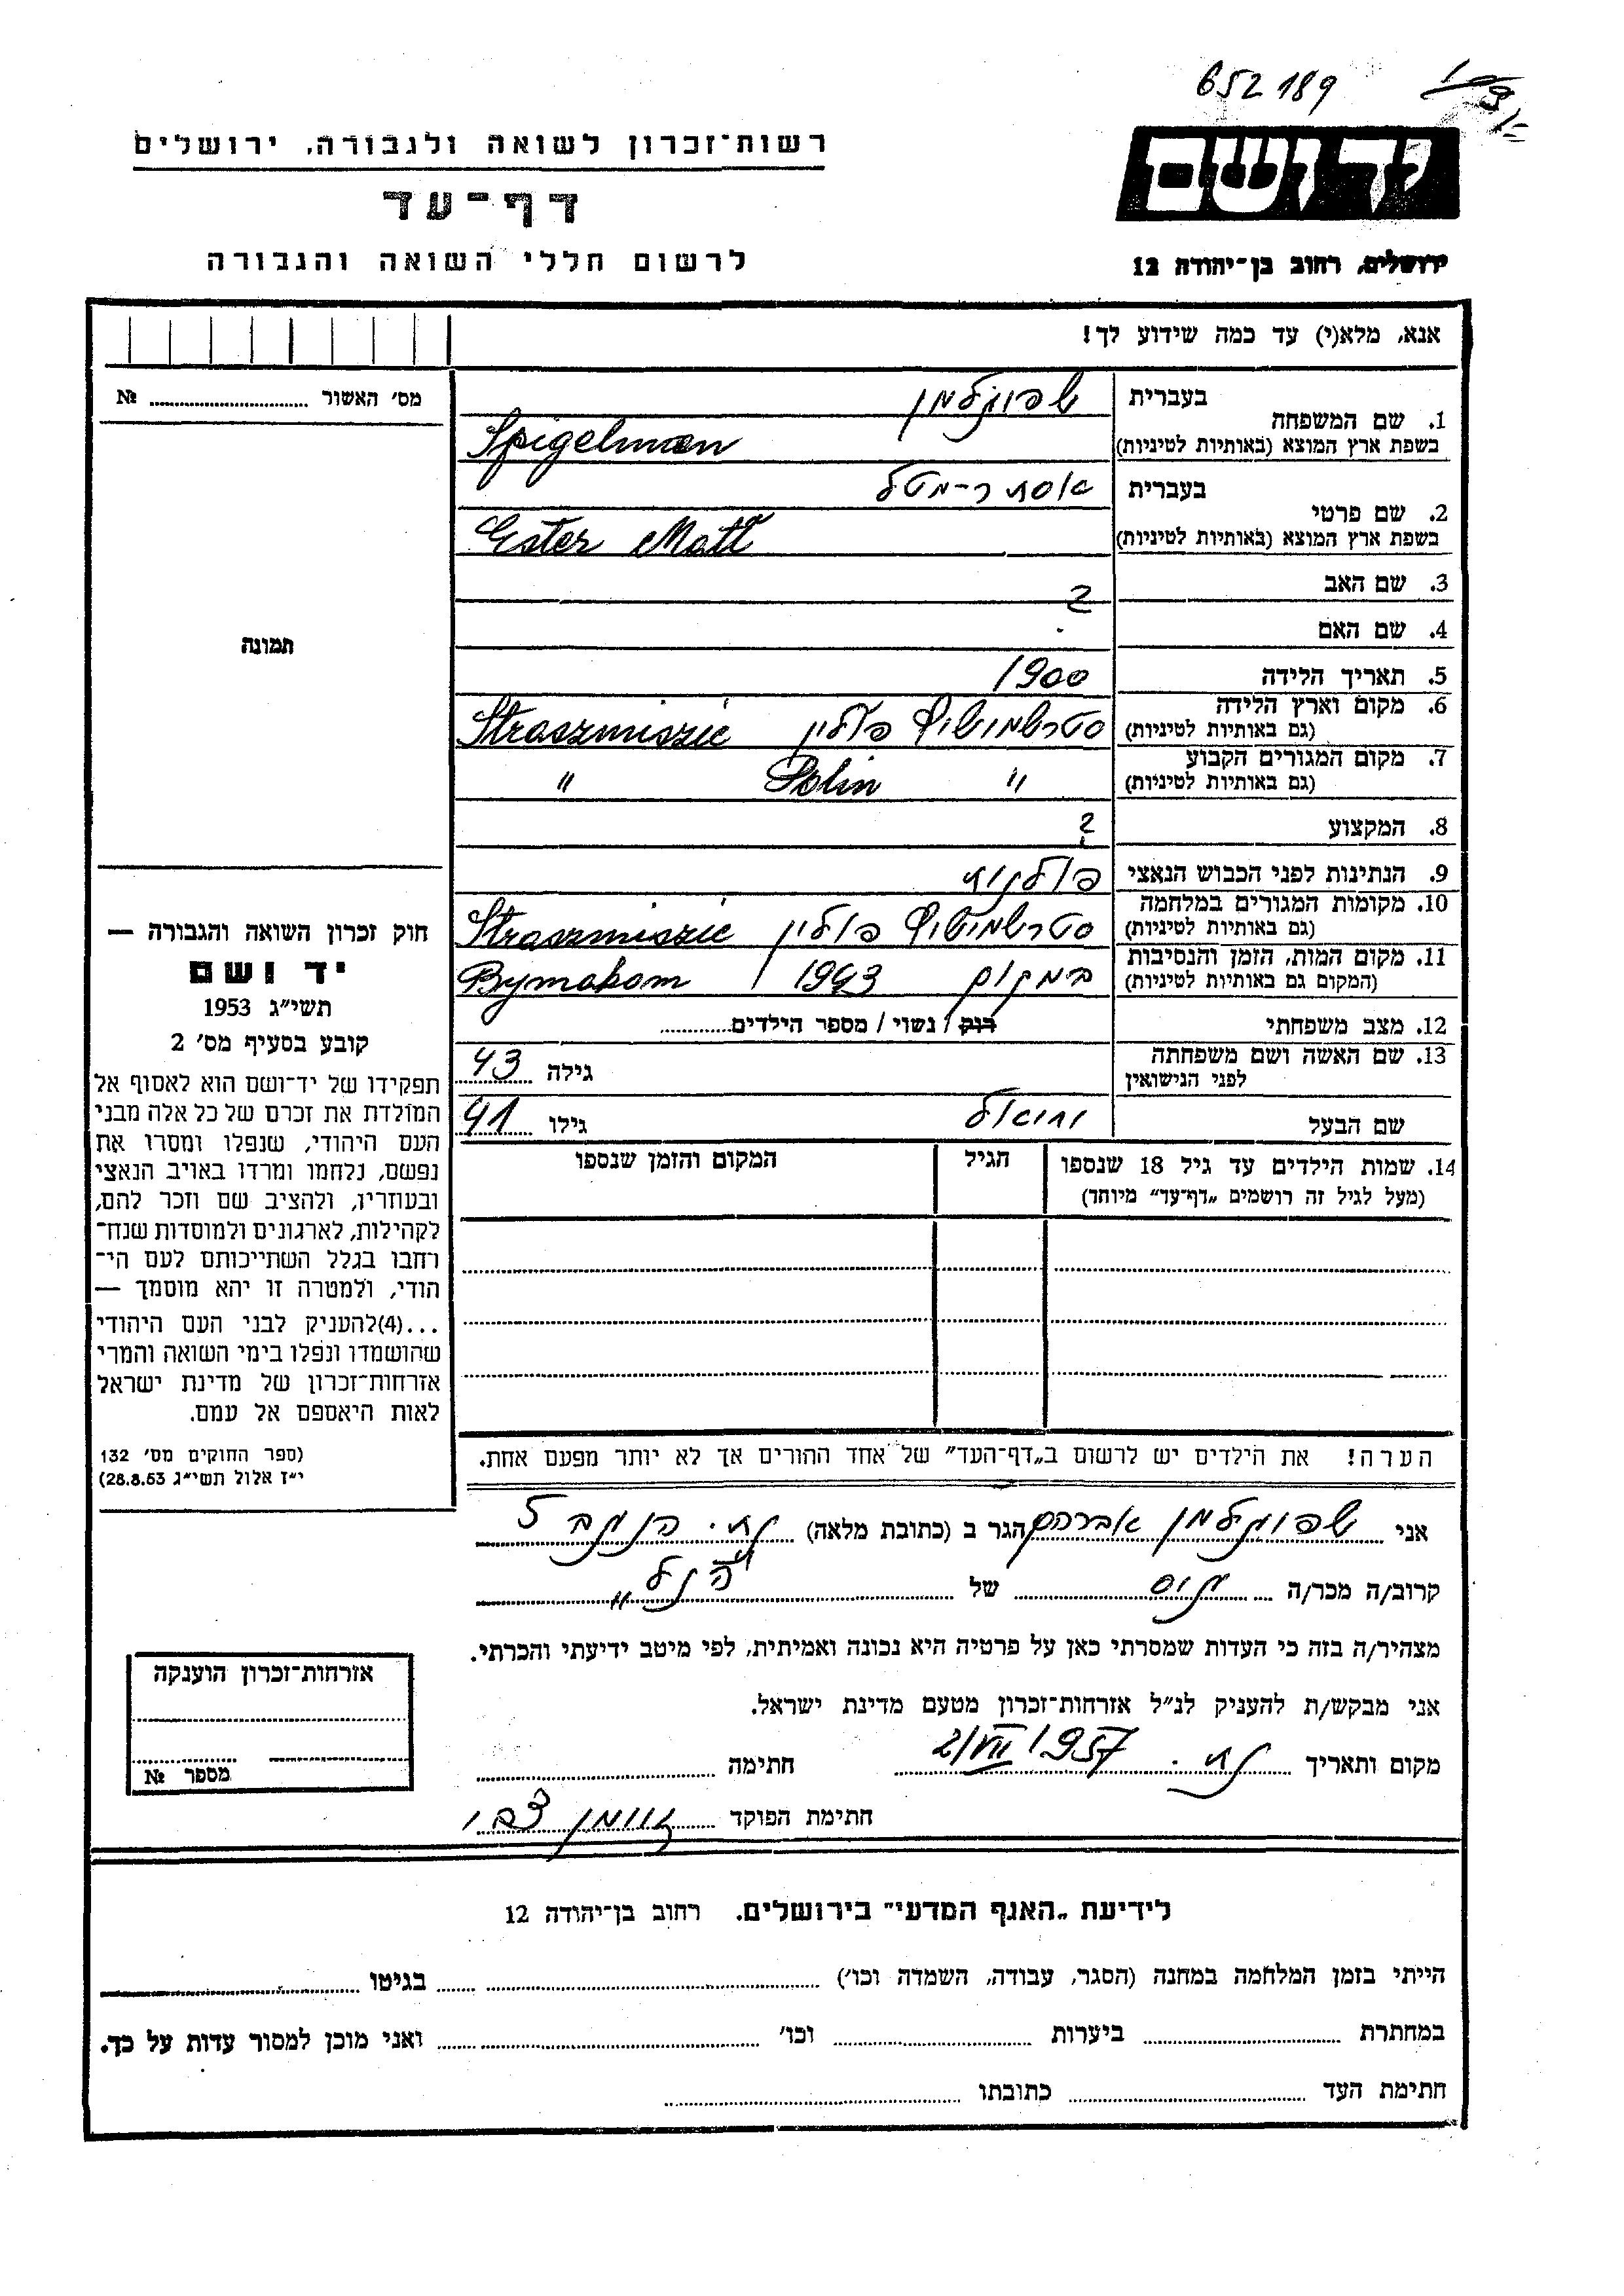 652189
רשות־זכרון לשואה ולגבורה, ירושלים
דף־עד
לרשום חללי השואה והגבורה
יד ושם
ירושלים, רחוב בן־יהודה 12
אנא, מלא(י) עד כמה שידוע לך!
מס׳ האשור № ........
תמונה
1. שם המשפחה
בעברית שפיגלמן
בשפת ארץ המוצא (באותיות לטיניות) Spigelman
2. שם פרטי
בעברית אסתר-מטל
בשפת ארץ המוצא (באותיות לטיניות) Ester Matl
3. שם האב ?
4. שם האם
5. תאריך הלידה 1900
6. מקום וארץ הלידה
(גם באותיות לטיניות) פולין Straszmiszić
7. מקום המגורים הקבוע
(גם באותיות לטיניות) " Polin "
8. המקצוע ?
9. הנתינות לפני הכבוש הנאצי פולנית
10. מקומות המגורים במלחמה
(גם באותיות לטיניות) פולין Straszmiszić
11. מקום המות, הזמן והנסיבות
(המקום גם באותיות לטיניות) במקום 1943 Bymakom
12. מצב משפחתי רוק / נשוי / מספר הילדים........
13. שם האשה ושם משפחתה
לפני הנישואין גילה 43
שם הבעל יחיאל גילו 41
14. שמות הילדים עד גיל 18 שנספו
(מעל לגיל זה רושמים „דף־עד״ מיוחד)
הגיל
המקום והזמן שנספו
חוק זכרון השואה והגבורה —
יד ושם
תשי״ג 1953
קובע בסעיף מס׳ 2
תפקידו של יד־ושם הוא לאסוף אל
המולדת את זכרם של כל אלה מבני
העם היהודי, שנפלו ומסרו את
נפשם, נלחמו ומרדו באויב הנאצי
ובעוזריו, ולהציב שם וזכר להם,
לקהילות, לארגונים ולמוסדות שנח־
רחבו בגלל השתייכותם לעם הי־
הודי, ולמטרה זו יהא מוסמך —
...(4)להעניק לבני העם היהודי
שהושמדו ונפלו בימי השואה והמרי
אזרחות־זכרון של מדינת ישראל
לאות היאספם אל עמם.
(ספר החוקים מס׳ 132
י״ז אלול תשי״ג 28.8.53)
הערה! את הילדים יש לרשום ב„דף־העד״ של אחד ההורים אך לא יותר מפעם אחת.
אני שפיגלמן אברהם הגר ב (כתובת מלאה) 5
קרוב/ה מכר/ה גיס של הנ״ל
מצהיר/ה בזה כי העדות שמסרתי כאן על פרטיה היא נכונה ואמיתית, לפי מיטב ידיעתי והכרתי.
אני מבקש/ת להעניק לנ״ל אזרחות־זכרון מטעם מדינת ישראל.
מקום ותאריך 2/VII 1957 חתימה ........
חתימת הפוקד צבי
אזרחות־זכרון הוענקה
מספר №
לידיעת „האגף המדעי״ בירושלים. רחוב בן־יהודה 12
הייתי בזמן המלחמה במחנה (הסגר, עבודה, השמדה וכו׳) ........ בגיטו ........
במחתרת ........ ביערות ........ וכו׳ ........ ואני מוכן למסור עדות על כך.
חתימת העד ........ כתובתו ........